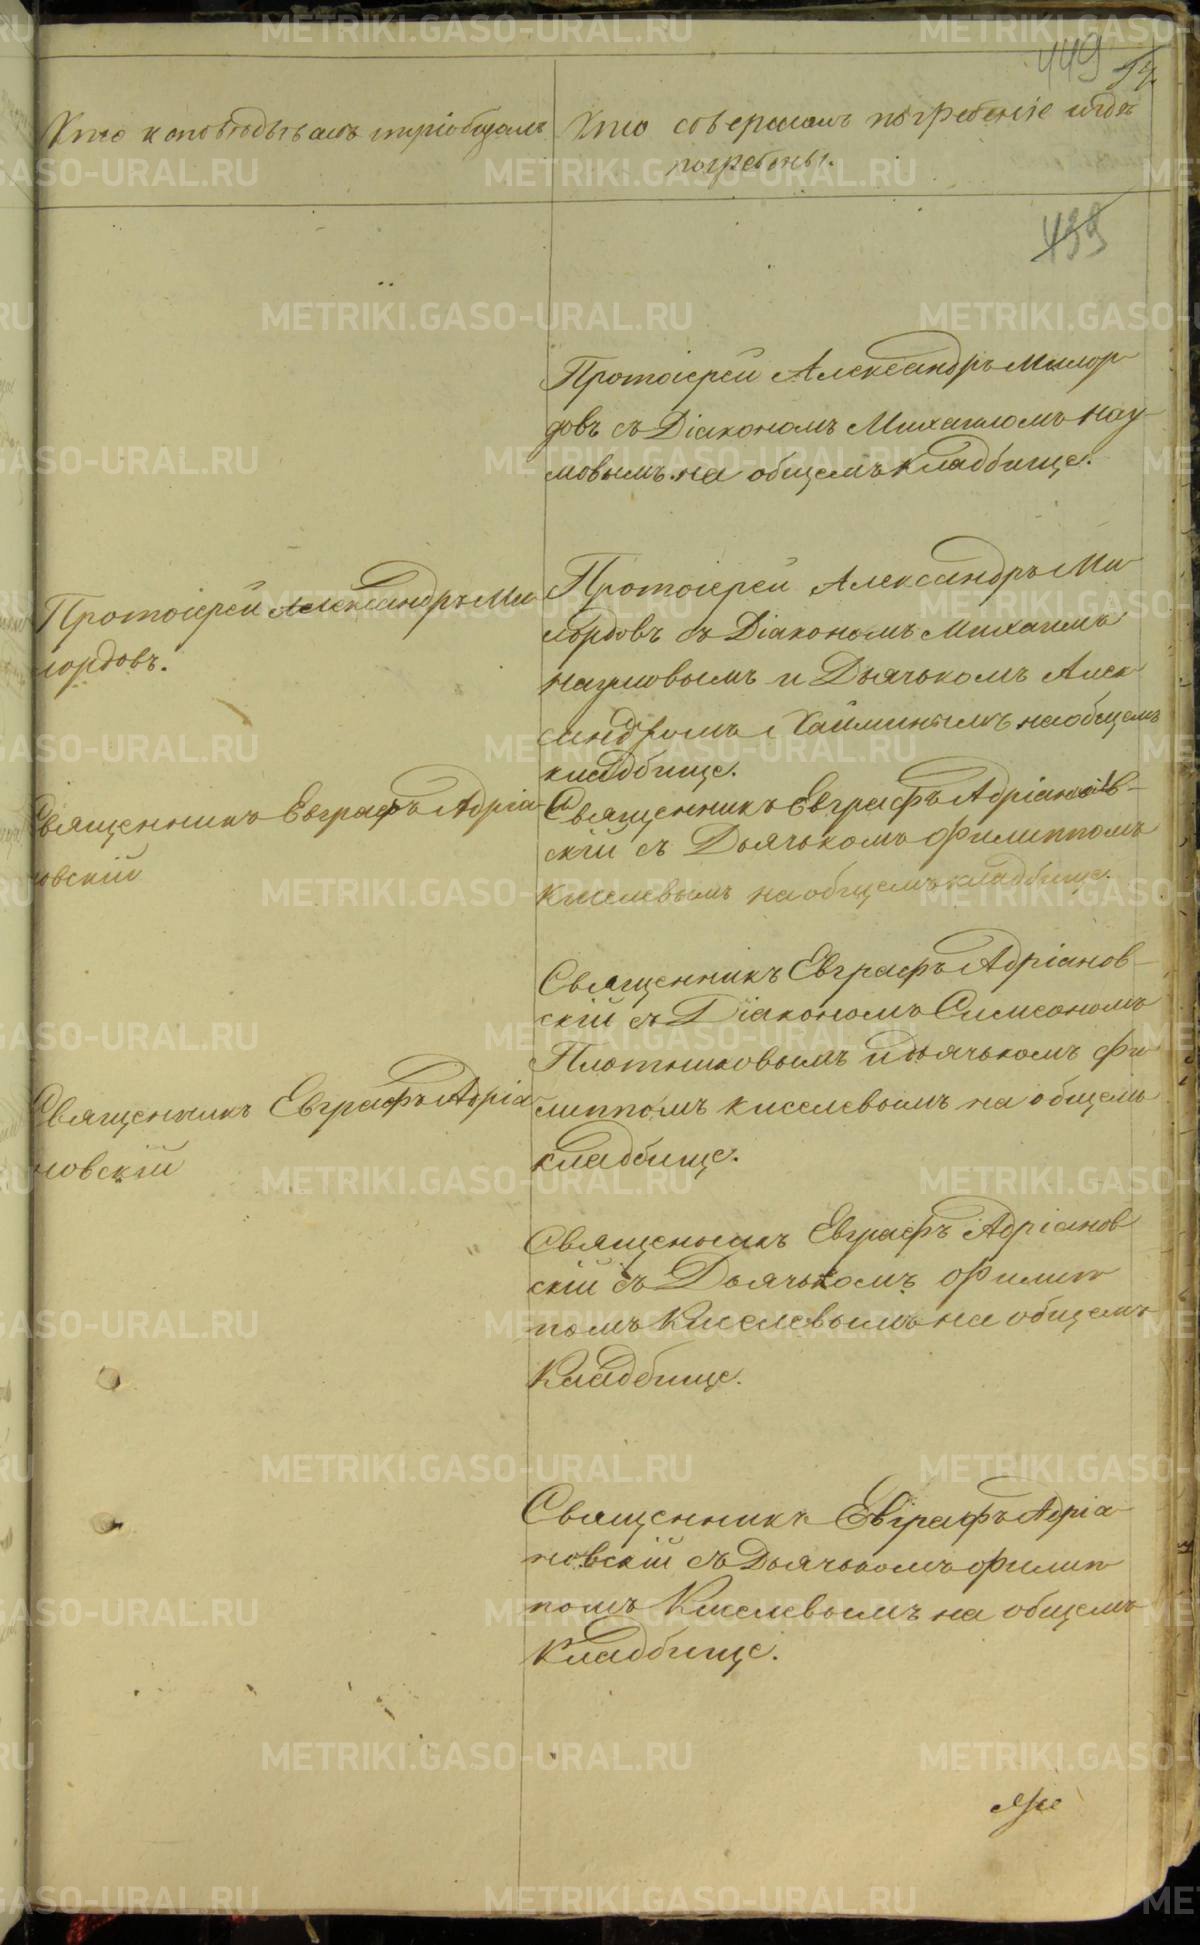 449 54
Кто исповѣдывалъ и пріобщалъ
Кто совершалъ погребеніе и гдѣ
погребены.
499
Протоіерей Александръ Милор-
довъ съ Діакономъ Михаиломъ Нау-
мовымъ на общемъ кладбище.
Протоіерей Александръ Ми
лордовъ.
Протоіерей Александръ Ми
лордовъ съ Діакономъ Михаиломъ
Наумовымъ и Дьячькомъ Алек
сандромъ Хайминымъ на общемъ
кладбище.
Священникъ Евграфъ Адріа-
новскій
Священникъ Евграфъ Адріанов-
скій съ Дьячькомъ Филиппомъ
Киселевымъ на общемъ кладбище.
Священникъ Евграфъ Адріанов-
скій съ Діакономъ Симеономъ
Плотниковымъ и дьячькомъ Фи
липпомъ Киселевымъ на общемъ
кладбище.
Священникъ Евграфъ Адріа
новскій
Священникъ Евграфъ Адріанов
скій съ Дьячькомъ Филип
помъ Киселевымъ на общемъ
Кладбище.
Священникъ Евграфъ Адріа
новскій съ Дьячькомъ Филип
помъ Киселевымъ на общемъ
Кладбище.
METRIKI.GASO-URAL.RU